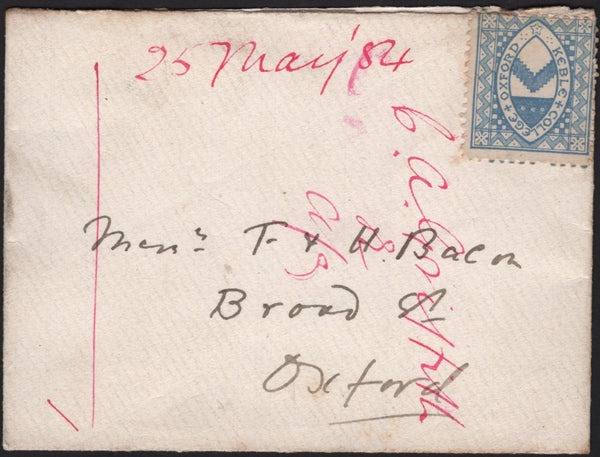 25 May '84
KEBLE + COLLEGE + OXFORD
Messrs F. & H. Bacon
Broad St
Oxford
C. A.